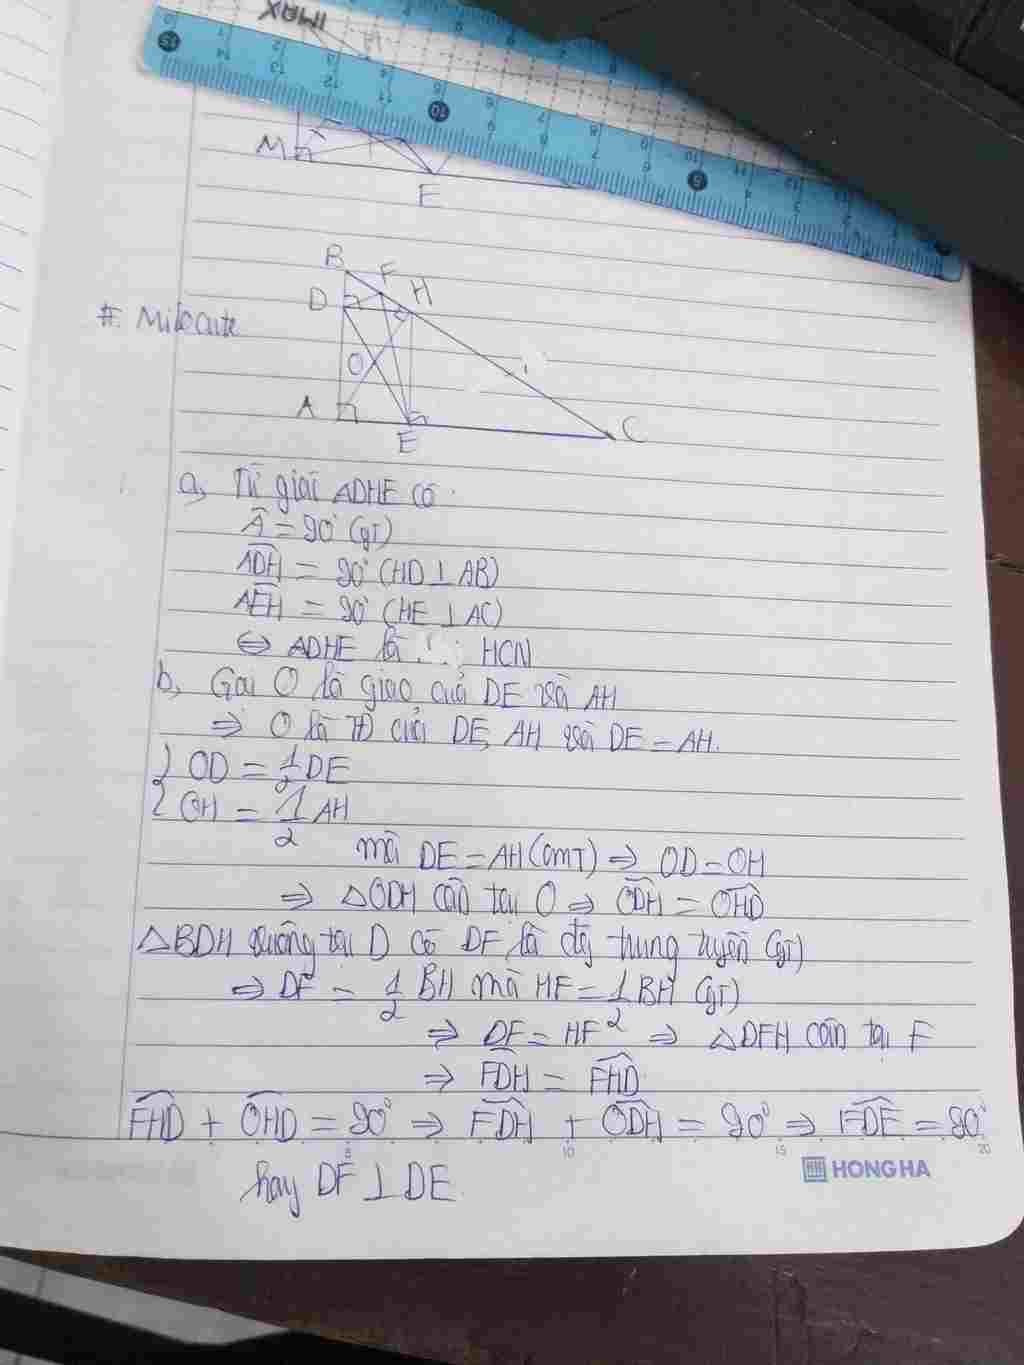 IMAX
M
E
B
F
H
D
#. Milocute
O
A
E
C
a, Tứ giác ADHE có:
Â = 90° (gt)
ADH = 90° (HD ⊥ AB)
AEH = 90° (HE ⊥ AC)
⇔ ADHE là HCN
b, Gọi O là giao của DE và AH
⇒ O là TĐ của DE, AH và DE = AH.
{ OD = 1/2 DE
{ OH = 1/2 AH
mà DE = AH (cmT) ⇒ OD = OH
⇒ △ODH cân tại O ⇒ ODH = OHD
△BDH vuông tại D có DF là đg trung tuyến (gt)
⇒ DF = 1/2 BH mà HF = 1/2 BH (gt)
⇒ DF = HF ⇒ △DFH cân tại F
⇒ FDH = FHD
FHD + OHD = 90° ⇒ FDH + ODH = 90° ⇒ FDE = 90°
HONG HA
hay DF ⊥ DE.